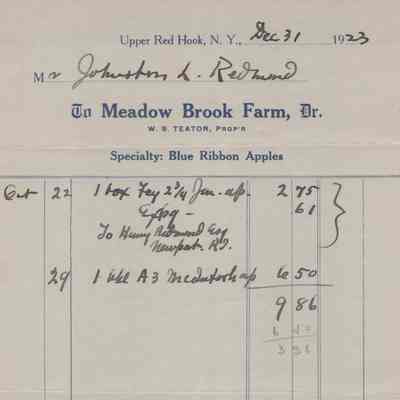 Upper Red Hook, N. Y., Dec 31 1923
Mr Johnston L. Redmond
To Meadow Brook Farm, Dr.
W. S. TEATOR, PROP'R
Specialty: Blue Ribbon Apples
Oct 22 1 box Fcy 2 3/4 Jon. ap. 2 75
Exp - 61
To Henry Redmond Esq
Newport R.I.
29 1 bbl A 3 McIntosh ap 6 50
9 86
3 36